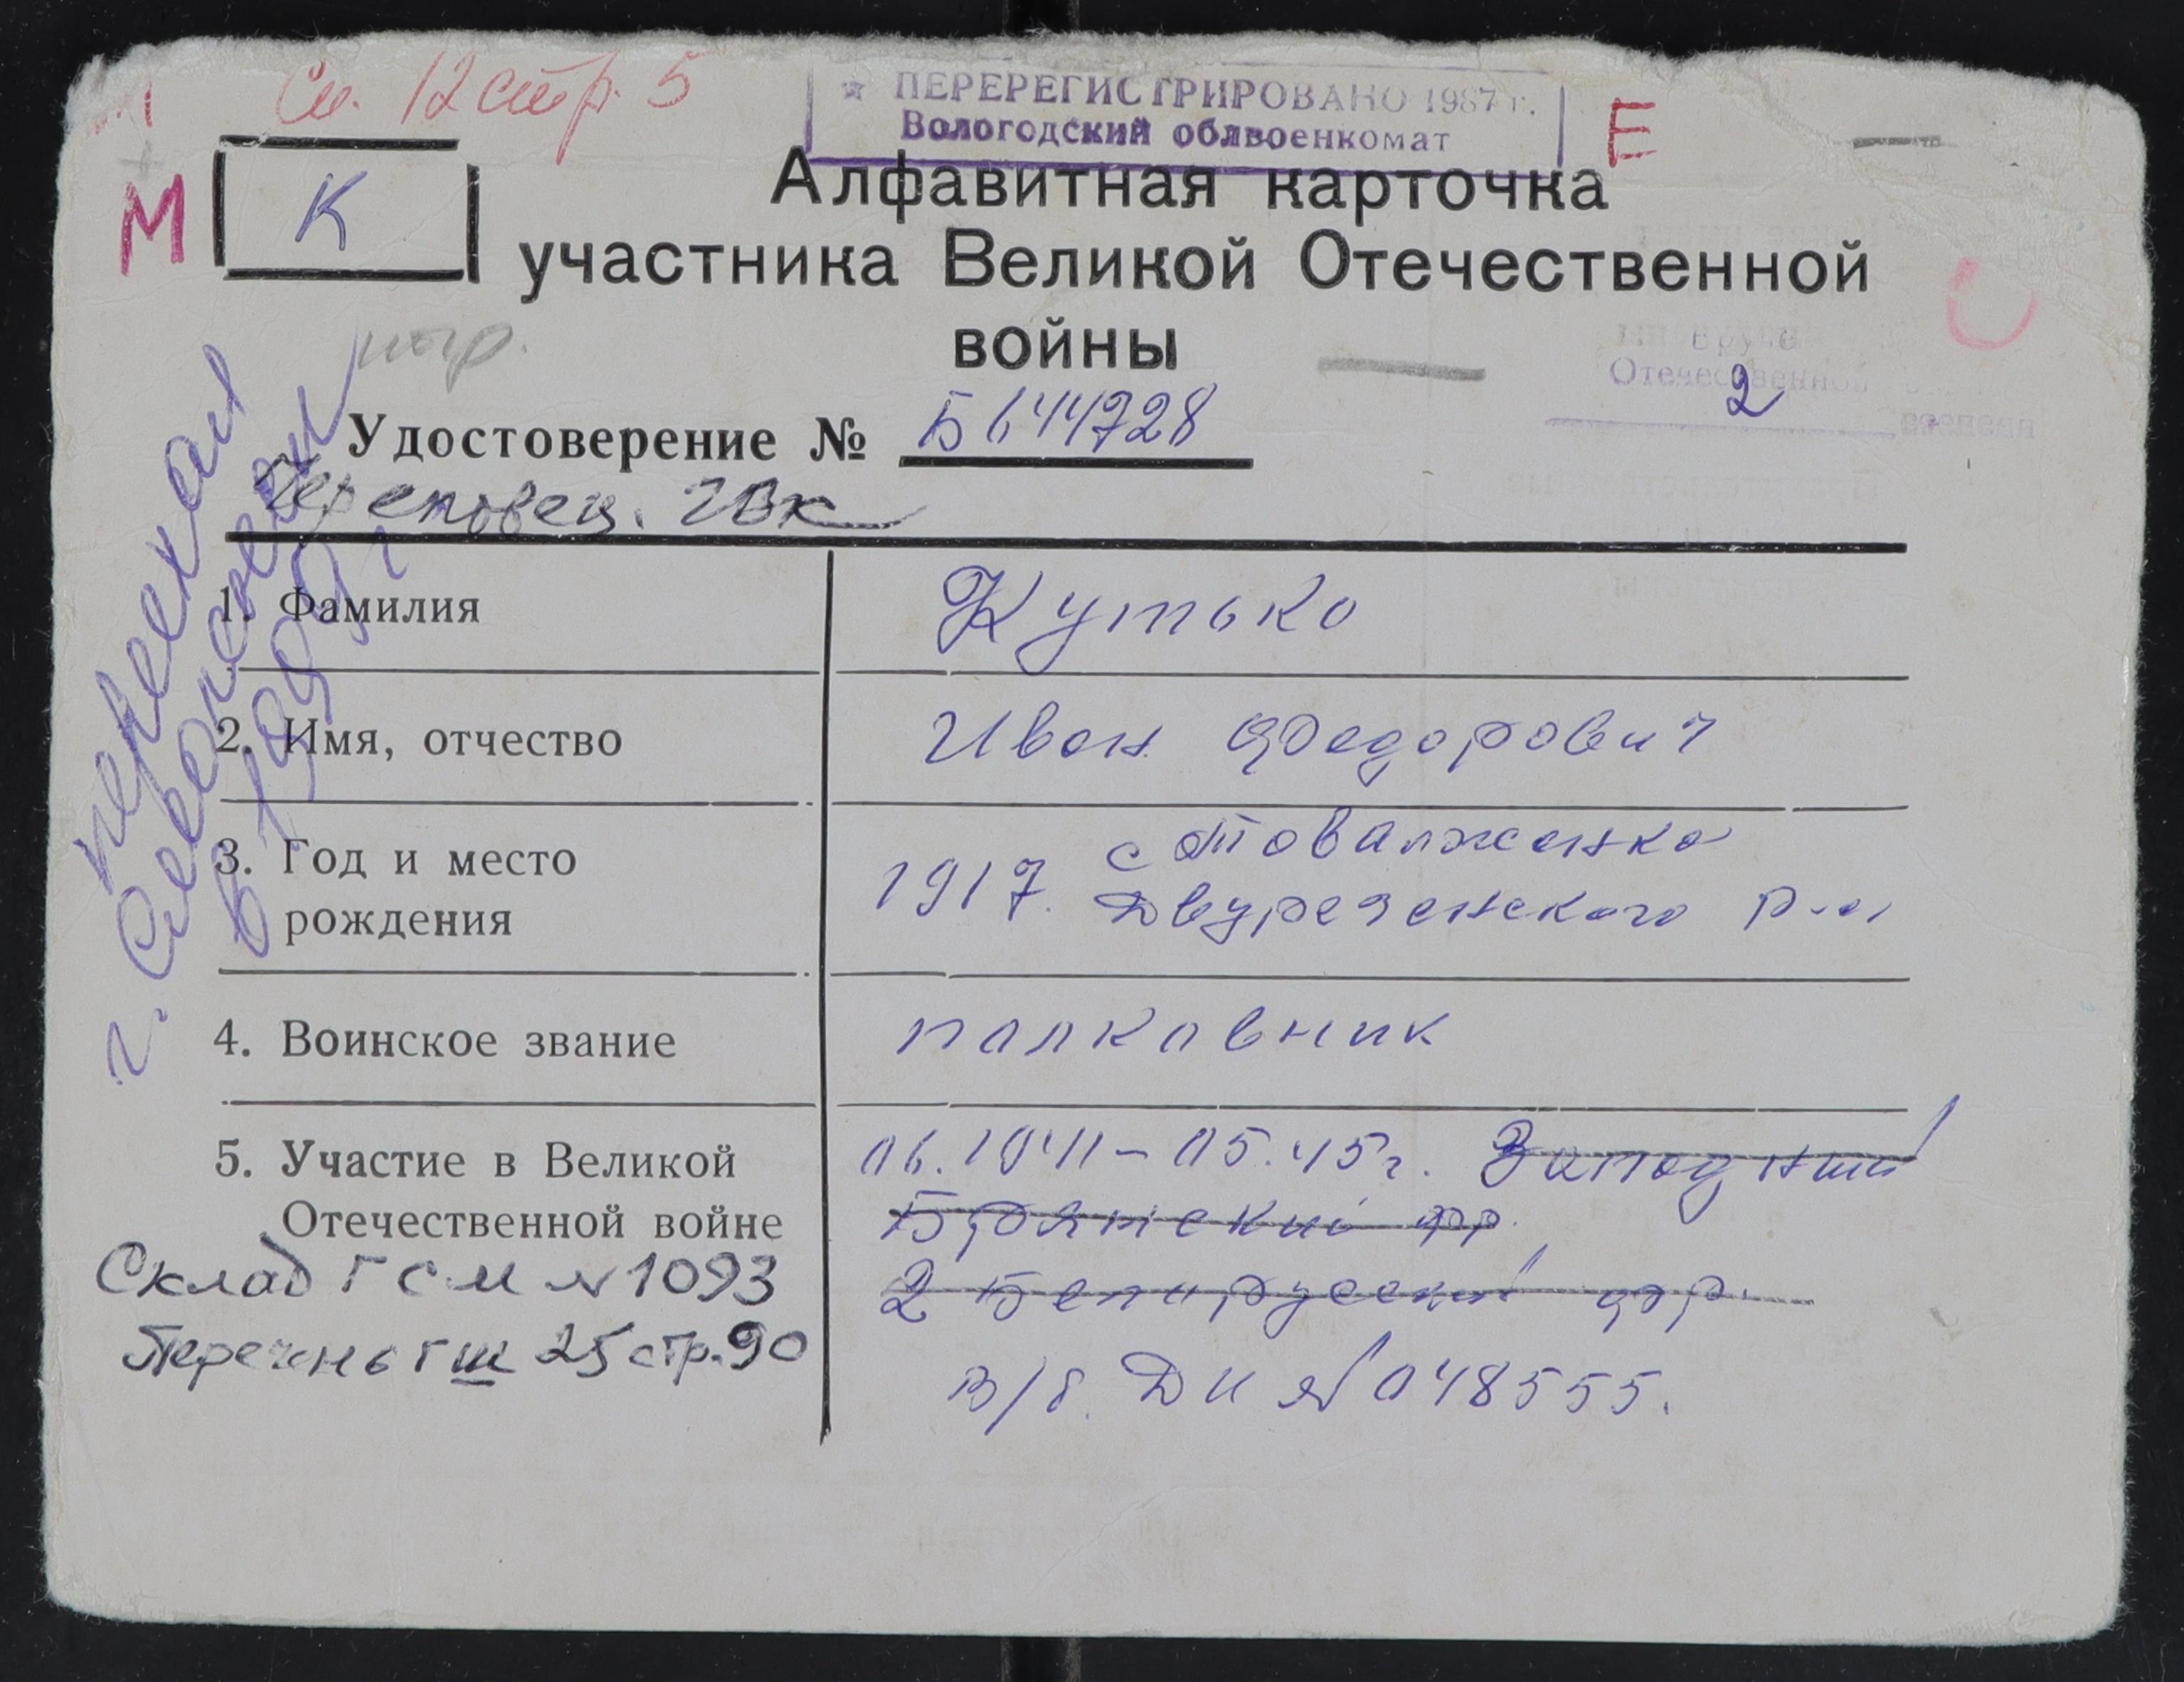 См. 12 стр. 5
★ ПЕРЕРЕГИСТРИРОВАНО 1987 г.
Вологодский облвоенкомат
Е
М
К
Алфавитная карточка
участника Великой Отечественной
войны
Удостоверение № Б644728
Вруче
Отечественной
2
степени
Череповец. ГВК
переехал
г. Северск
в 1990 г
1. Фамилия
Кутько
2. Имя, отчество
Иван Федорович
3. Год и место
рождения
1917. с Товалжанка
Двуреченского р-н
4. Воинское звание
полковник
5. Участие в Великой
Отечественной войне
06.1941-05.45г. Западный
Брянский фр.
2 Белорусский фр.
В/б. ДИ №048555.
Склад ГСМ №1093
Перечень ГШ 25 стр.90